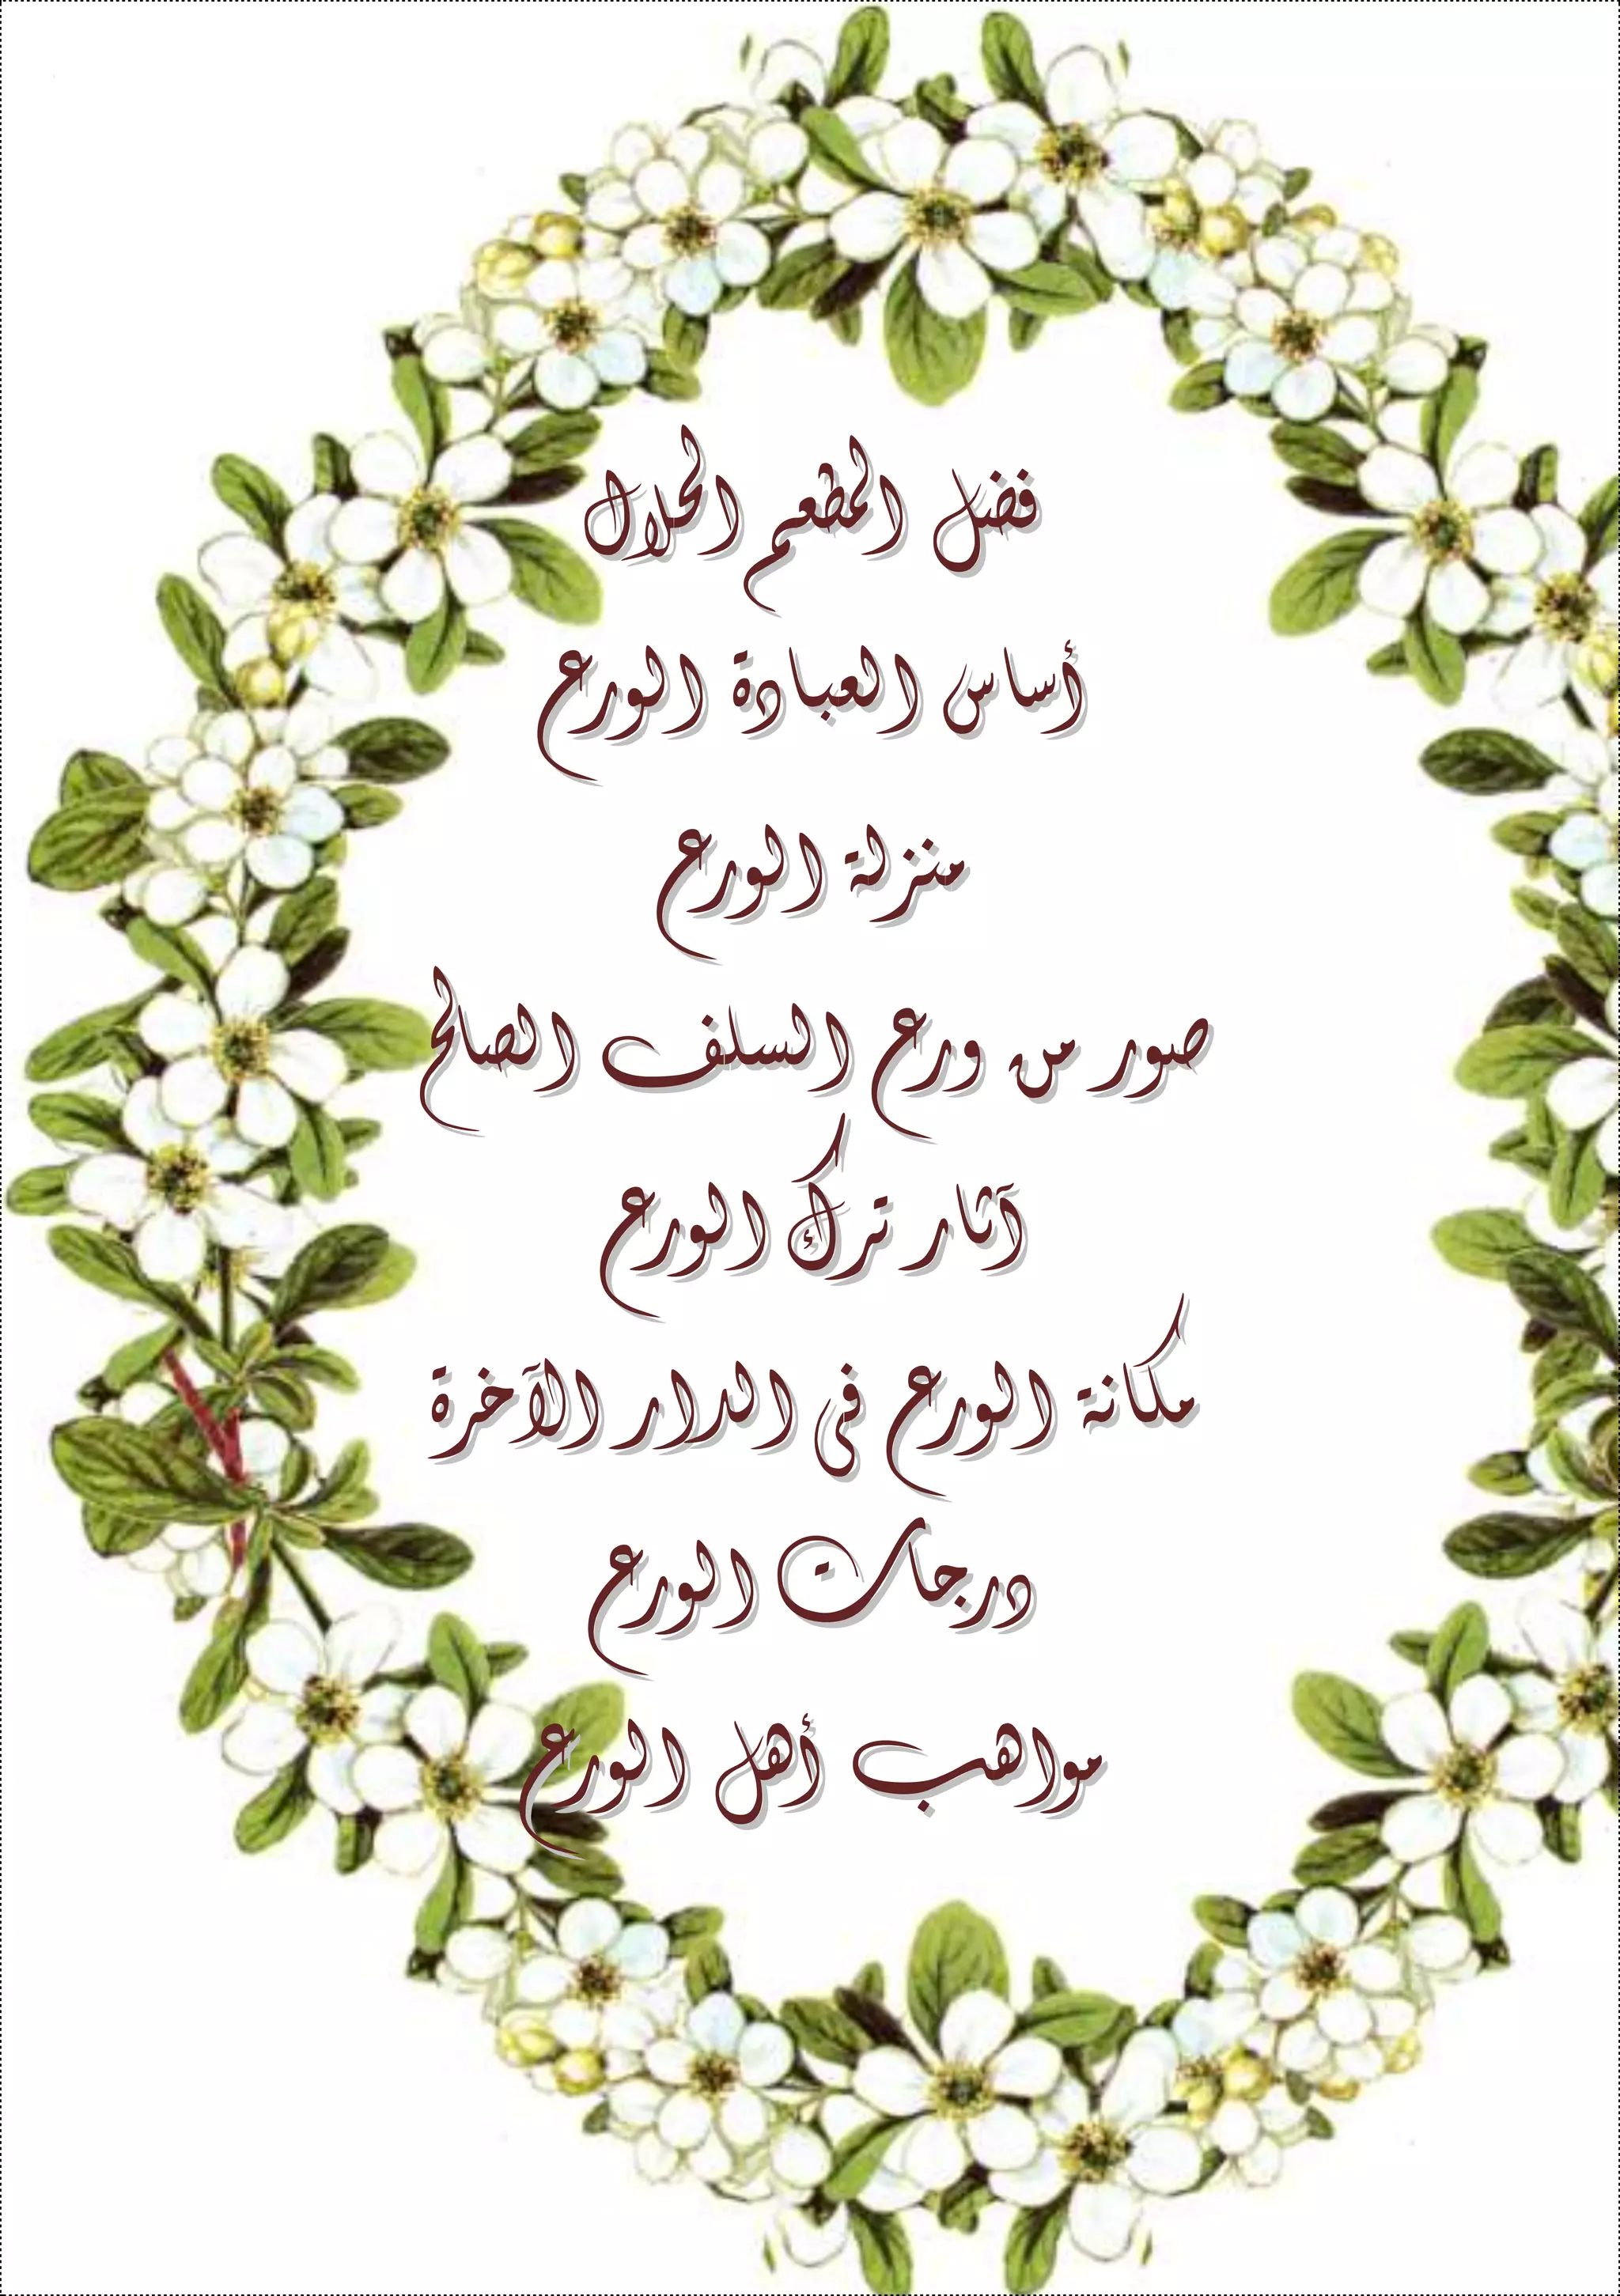 فضل المطعم الحلال
أساس العبادة الورع
منزلة الورع
صور من ورع السلف الصالح
آثار ترك الورع
مكانة الورع فى الدار الآخرة
درجات الورع
مواهب أهل الورع